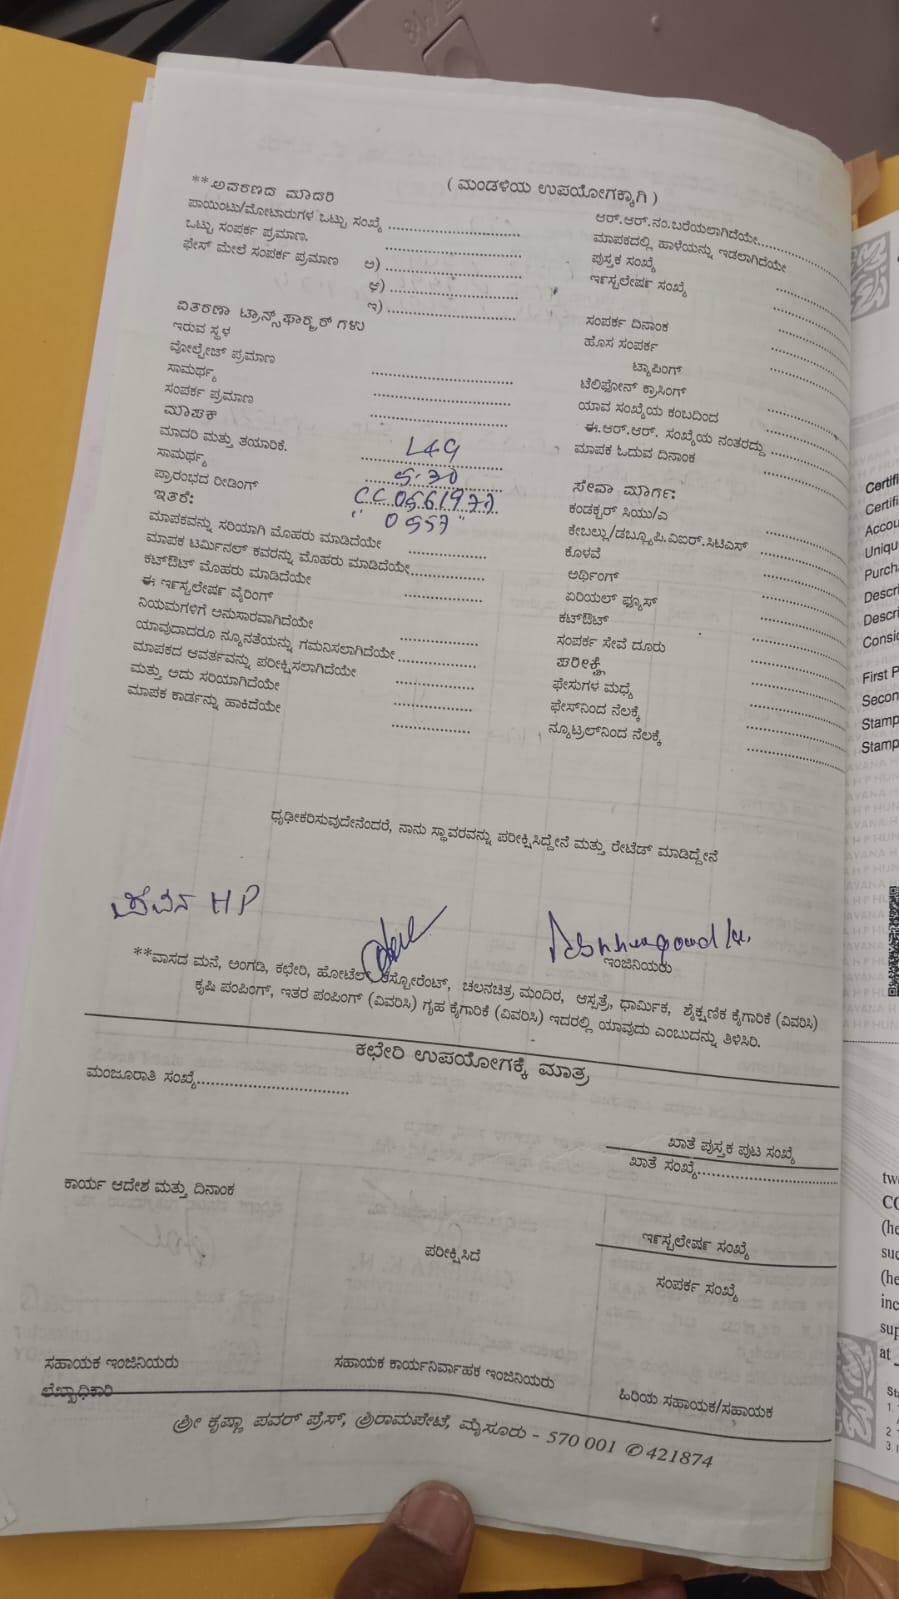 ( ಮಂಡಳಿಯ ಉಪಯೋಗಕ್ಕಾಗಿ )
**ಅವರಣದ ಮಾದರಿ
ಪಾಯಿಂಟು/ಮೋಟಾರುಗಳ ಒಟ್ಟು ಸಂಖ್ಯೆ ..............................
ಒಟ್ಟು ಸಂಪರ್ಕ ಪ್ರಮಾಣ. ..............................
ಫೇಸ್ ಮೇಲೆ ಸಂಪರ್ಕ ಪ್ರಮಾಣ ಅ) ..............................
ಆ) ..............................
ಇ) ..............................
ವಿತರಣಾ ಟ್ರಾನ್ಸ್‌ಫಾರ್ಮರ್ ಗಳು
ಇರುವ ಸ್ಥಳ
ವೋಲ್ಟೇಜ್ ಪ್ರಮಾಣ ..............................
ಸಾಮರ್ಥ್ಯ ..............................
ಸಂಪರ್ಕ ಪ್ರಮಾಣ ..............................
ಮಾಪಕ
ಮಾದರಿ ಮತ್ತು ತಯಾರಿಕೆ. L&G
ಸಾಮರ್ಥ್ಯ 5-30
ಪ್ರಾರಂಭದ ರೀಡಿಂಗ್
ಇತರೆ:
ಮಾಪಕವನ್ನು ಸರಿಯಾಗಿ ಮೊಹರು ಮಾಡಿದೆಯೇ ..................
ಮಾಪಕ ಟರ್ಮಿನಲ್ ಕವರನ್ನು ಮೊಹರು ಮಾಡಿದೆಯೇ..................
ಕಟ್‌ಔಟ್ ಮೊಹರು ಮಾಡಿದೆಯೇ ..................
ಈ ಇನ್‌ಸ್ಟಲೇಷನ್ ವೈರಿಂಗ್
ನಿಯಮಗಳಿಗೆ ಅನುಸಾರವಾಗಿದೆಯೇ ..................
ಯಾವುದಾದರೂ ನ್ಯೂನತೆಯನ್ನು ಗಮನಿಸಲಾಗಿದೆಯೇ..................
ಮಾಪಕದ ಆವರ್ತವನ್ನು ಪರೀಕ್ಷಿಸಲಾಗಿದೆಯೇ ..................
ಮತ್ತು ಅದು ಸರಿಯಾಗಿದೆಯೇ ..................
ಮಾಪಕ ಕಾರ್ಡನ್ನು ಹಾಕಿದೆಯೇ ..................
ಆರ್.ಆರ್.ನಂ.ಬರೆಯಲಾಗಿದೆಯೇ..................
ಮಾಪಕದಲ್ಲಿ ಹಾಳೆಯನ್ನು ಇಡಲಾಗಿದೆಯೇ
ಪುಸ್ತಕ ಸಂಖ್ಯೆ ..................
ಇನ್‌ಸ್ಟಲೇಷನ್ ಸಂಖ್ಯೆ ..................
ಸಂಪರ್ಕ ದಿನಾಂಕ ..................
ಹೊಸ ಸಂಪರ್ಕ ..................
ಟ್ಯಾಪಿಂಗ್ ..................
ಟೆಲಿಫೋನ್ ಕ್ರಾಸಿಂಗ್
ಯಾವ ಸಂಖ್ಯೆಯ ಕಂಬದಿಂದ ..................
ಈ.ಆರ್.ಆರ್. ಸಂಖ್ಯೆಯ ನಂತರದ್ದು ..................
ಮಾಪಕ ಓದುವ ದಿನಾಂಕ ..................
ಸೇವಾ ಮಾರ್ಗ:
ಕಂಡಕ್ಟರ್ ಸಿಯು/ಎ ..................
ಕೇಬಲ್ಲು/ಡಬ್ಲ್ಯೂ.ಪಿ.ವಿಐಆರ್.ಸಿಟಿಎಸ್ ..................
ಕೊಳವೆ ..................
ಅರ್ಥಿಂಗ್ ..................
ಏರಿಯಲ್ ಫ್ಯೂಸ್ ..................
ಕಟ್‌ಔಟ್ ..................
ಸಂಪರ್ಕ ಸೇವೆ ದೂರು ..................
ಪರೀಕ್ಷೆ
ಫೇಸುಗಳ ಮಧ್ಯೆ ..................
ಫೇಸ್‌ನಿಂದ ನೆಲಕ್ಕೆ ..................
ನ್ಯೂಟ್ರಲ್‌ನಿಂದ ನೆಲಕ್ಕೆ ..................
ಧೃಢೀಕರಿಸುವುದೇನೆಂದರೆ, ನಾನು ಸ್ಥಾವರವನ್ನು ಪರೀಕ್ಷಿಸಿದ್ದೇನೆ ಮತ್ತು ರೇಟೆಡ್ ಮಾಡಿದ್ದೇನೆ
HP
ಇಂಜಿನಿಯರು
**ವಾಸದ ಮನೆ, ಅಂಗಡಿ, ಕಛೇರಿ, ಹೋಟೆಲ್, ರೆಸ್ಟೋರೆಂಟ್, ಚಲನಚಿತ್ರ ಮಂದಿರ, ಆಸ್ಪತ್ರೆ, ಧಾರ್ಮಿಕ, ಶೈಕ್ಷಣಿಕ ಕೈಗಾರಿಕೆ (ವಿವರಿಸಿ)
ಕೃಷಿ ಪಂಪಿಂಗ್, ಇತರ ಪಂಪಿಂಗ್ (ವಿವರಿಸಿ) ಗೃಹ ಕೈಗಾರಿಕೆ (ವಿವರಿಸಿ) ಇದರಲ್ಲಿ ಯಾವುದು ಎಂಬುದನ್ನು ತಿಳಿಸಿರಿ.
ಕಛೇರಿ ಉಪಯೋಗಕ್ಕೆ ಮಾತ್ರ
ಮಂಜೂರಾತಿ ಸಂಖ್ಯೆ..............................
ಖಾತೆ ಪುಸ್ತಕ ಪುಟ ಸಂಖ್ಯೆ
ಖಾತೆ ಸಂಖ್ಯೆ..............................
ಕಾರ್ಯ ಆದೇಶ ಮತ್ತು ದಿನಾಂಕ
ಇನ್‌ಸ್ಟಲೇಷನ್ ಸಂಖ್ಯೆ
ಪರೀಕ್ಷಿಸಿದೆ
ಸಂಪರ್ಕ ಸಂಖ್ಯೆ
ಸಹಾಯಕ ಇಂಜಿನಿಯರು
ಸಹಾಯಕ ಕಾರ್ಯನಿರ್ವಾಹಕ ಇಂಜಿನಿಯರು
ಹಿರಿಯ ಸಹಾಯಕ/ಸಹಾಯಕ
ಲೆಖ್ಖಾಧಿಕಾರಿ
ಶ್ರೀ ಕೃಷ್ಣಾ ಪವರ್ ಪ್ರೆಸ್, ಶ್ರೀರಾಮಪೇಟೆ, ಮೈಸೂರು - 570 001 ✆421874
First P
Stamp
Stamp